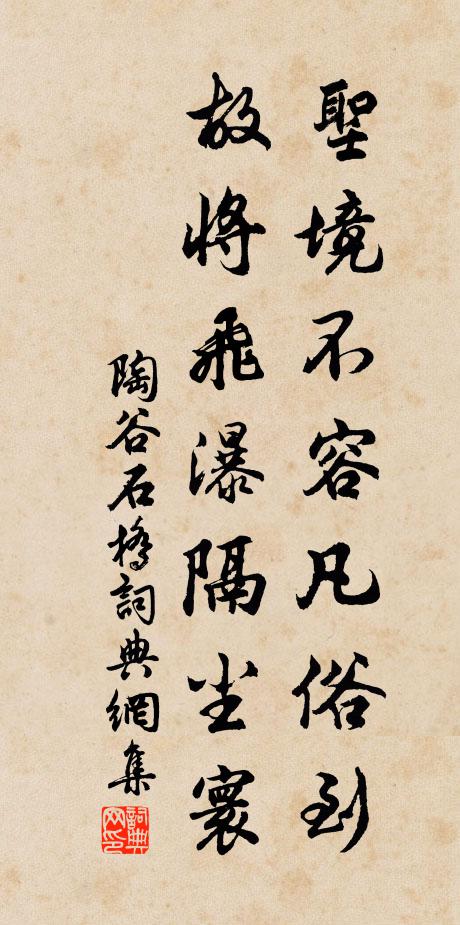 聖境不容凡俗到
故將飛瀑隔尘寰
陶谷石橋詞典網集
詞典网印